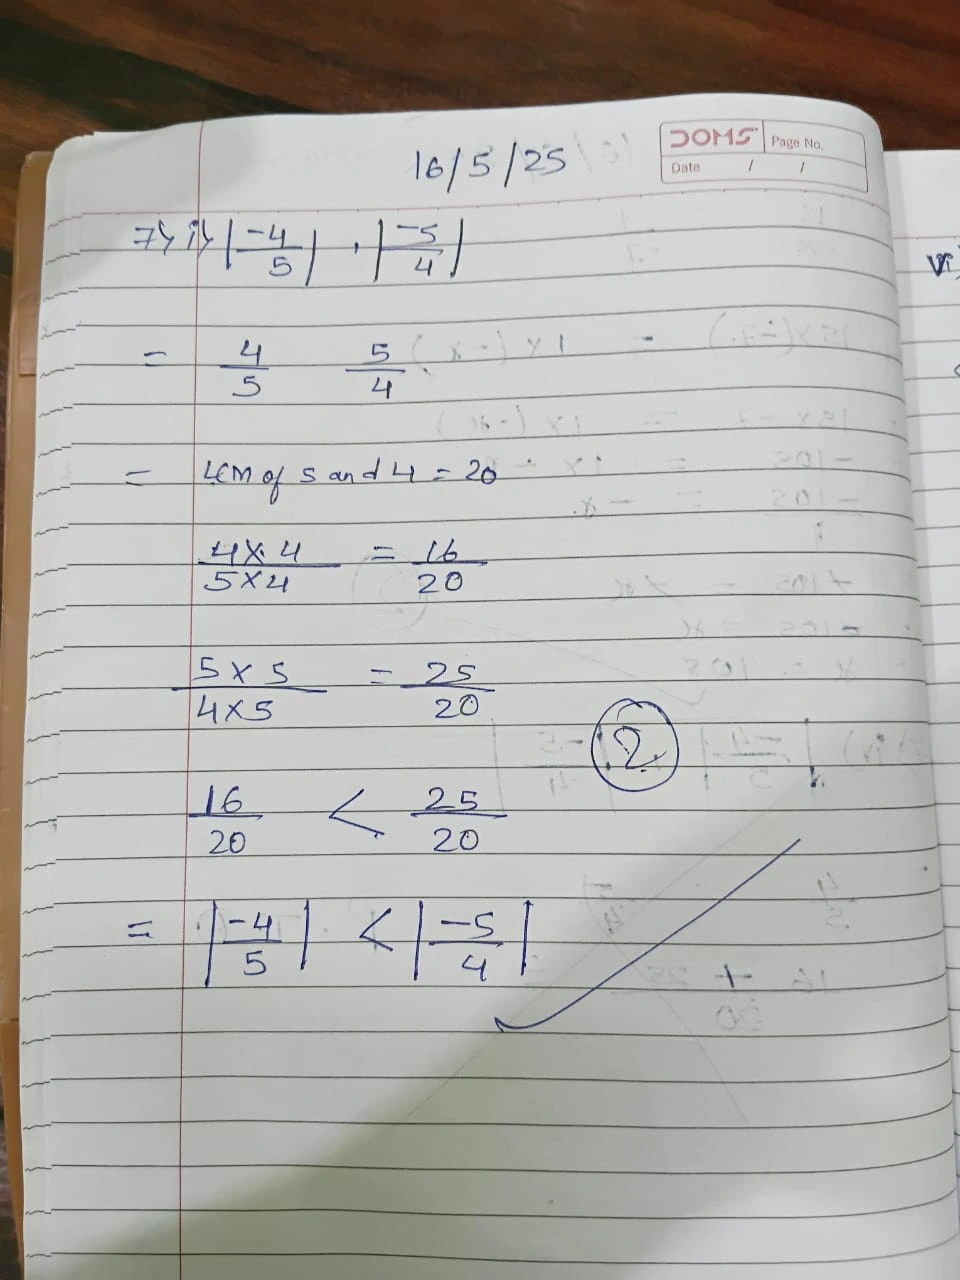 16/5/25
DOMS Page No.
Date / /
7) i) |-4/5| , |-5/4|
= 4/5 5/4
= LCM of 5 and 4 = 20
4×4/5×4 = 16/20
5×5/4×5 = 25/20
2
16/20 < 25/20
= |-4/5| < |-5/4|
vi)